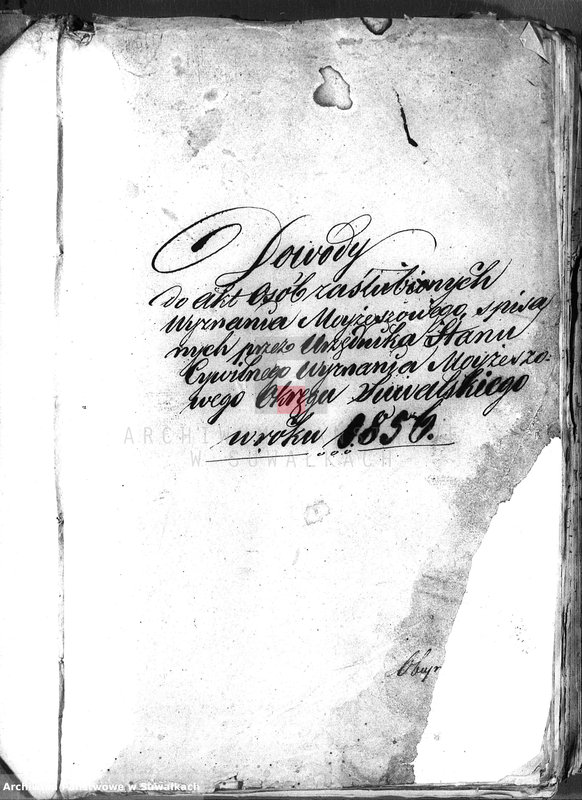 Dowody
do akt Osób zaślubionych
Wyznania Mojżeszowego, spisa
nych przez Urzędnika Stanu
Cywilnego Wyznania Mojżeszo-
wego Okręgu Suwalskiego
w roku 1850.
ARCHIWUM PAŃSTWOWE
W SUWAŁKACH
Archiwum Państwowe w Suwałkach